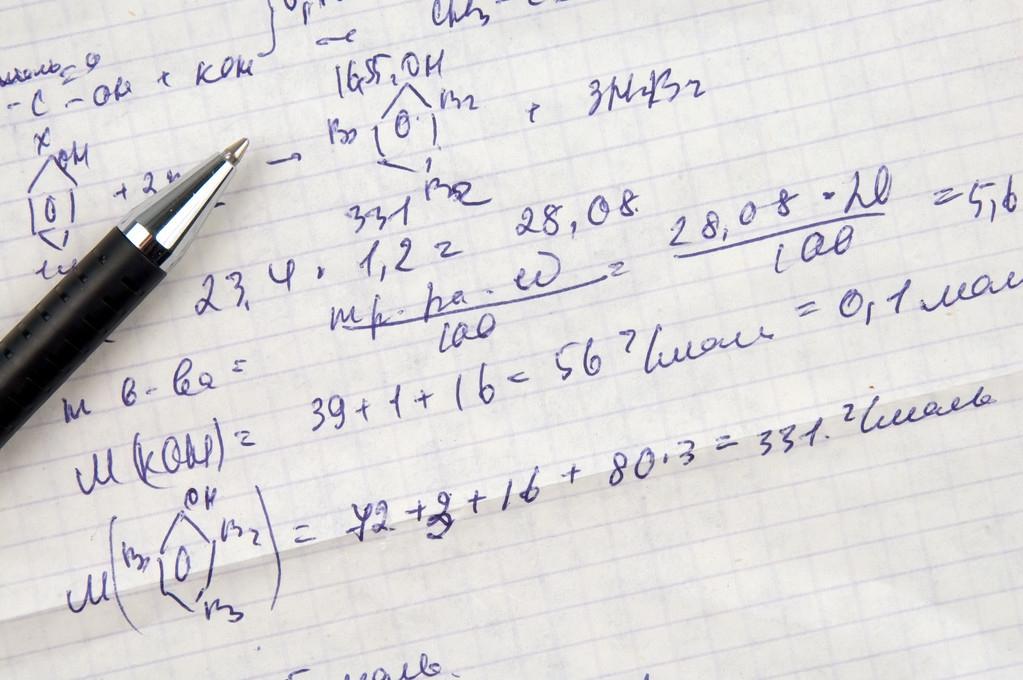 -C-OH + KOH
16,55 OH
Br Br + 3HBr
OH
+ 2
→
Br
331
23,4 · 1,2 = 28,08
m р-ра · ω / 100 = 28,08 · 20 / 100 = 5,6
m в-ва =
M(KOH) = 39 + 1 + 16 = 56 г/моль = 0,1 мол
OH
M(Br Br Br) = 72 + 3 + 16 + 80·3 = 331 г/моль
моль